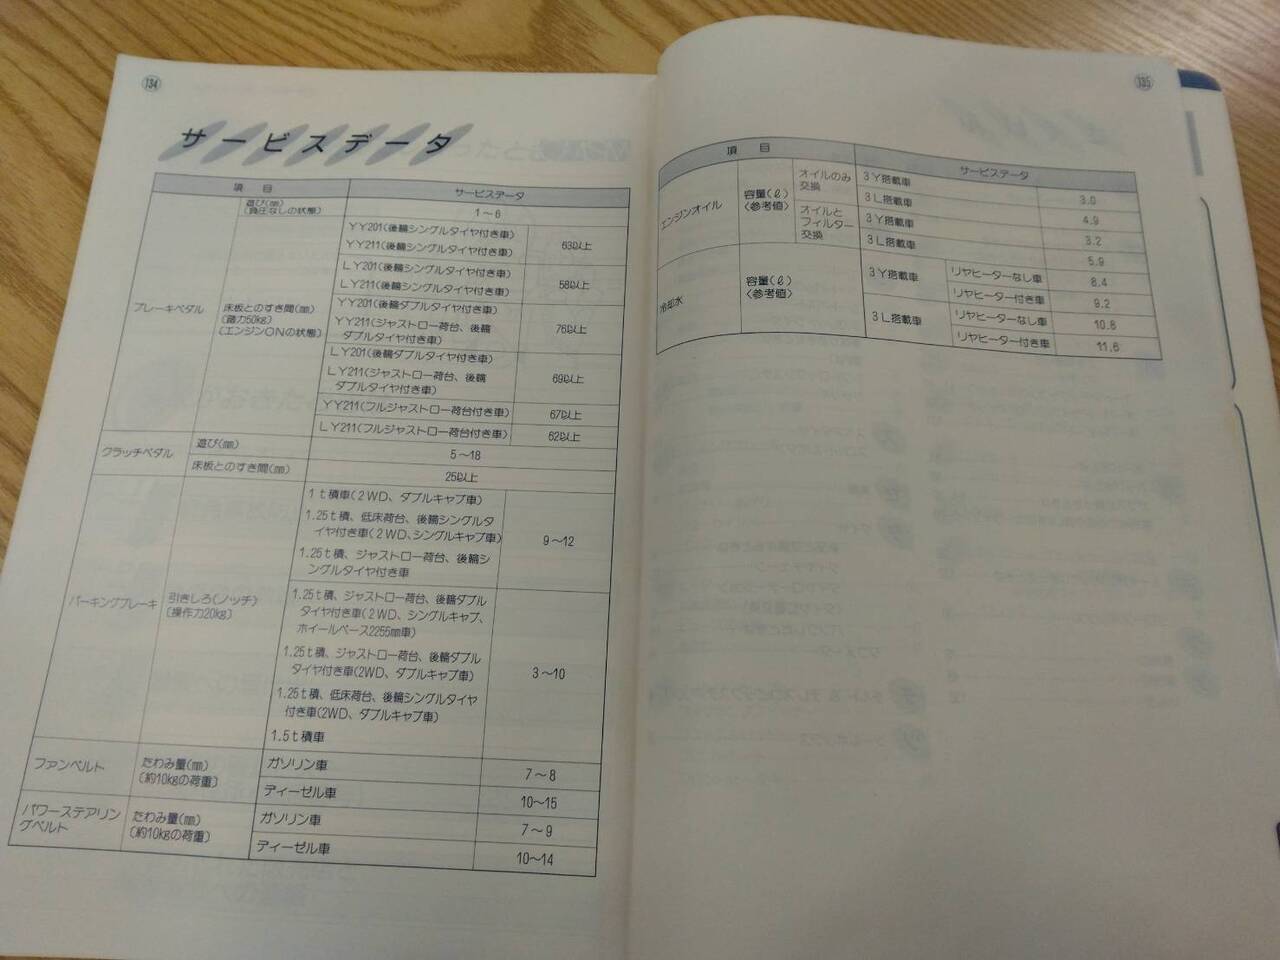 134
サービスデータ
項 目 サービスデータ
ブレーキペダル
遊び(㎜)
(負圧なしの状態)
1～6
床板とのすき間(㎜)
(踏力50㎏)
(エンジンONの状態)
YY201(後輪シングルタイヤ付き車)
YY211(後輪シングルタイヤ付き車)
63以上
LY201(後輪シングルタイヤ付き車)
LY211(後輪シングルタイヤ付き車)
58以上
YY201(後輪ダブルタイヤ付き車)
YY211(ジャストロー荷台、後輪
ダブルタイヤ付き車)
76以上
LY201(後輪ダブルタイヤ付き車)
LY211(ジャストロー荷台、後輪
ダブルタイヤ付き車)
69以上
YY211(フルジャストロー荷台付き車)
67以上
LY211(フルジャストロー荷台付き車)
62以上
クラッチペダル
遊び(㎜)
5～18
床板とのすき間(㎜)
25以上
パーキングブレーキ
引きしろ(ノッチ)
〔操作力20㎏〕
1t積車(2WD、ダブルキャブ車)
1.25t積、低床荷台、後輪シングルタ
イヤ付き車(2WD、シングルキャブ車)
1.25t積、ジャストロー荷台、後輪シ
ングルタイヤ付き車
9～12
1.25t積、ジャストロー荷台、後輪ダブル
タイヤ付き車(2WD、シングルキャブ、
ホイールベース2255㎜車)
1.25t積、ジャストロー荷台、後輪ダブル
タイヤ付き車(2WD、ダブルキャブ車)
1.25t積、低床荷台、後輪シングルタイヤ
付き車(2WD、ダブルキャブ車)
1.5t積車
3～10
ファンベルト
たわみ量(㎜)
〔約10㎏の荷重〕
ガソリン車
7～8
ディーゼル車
10～15
パワーステアリン
グベルト
たわみ量(㎜)
〔約10㎏の荷重〕
ガソリン車
7～9
ディーゼル車
10～14
135
項 目 サービスデータ
エンジンオイル
容量(ℓ)
〈参考値〉
オイルのみ
交換
3Y搭載車
3.0
3L搭載車
4.9
オイルと
フィルター
交換
3Y搭載車
3.2
3L搭載車
5.9
冷却水
容量(ℓ)
〈参考値〉
3Y搭載車
リヤヒーターなし車
8.4
リヤヒーター付き車
9.2
3L搭載車
リヤヒーターなし車
10.8
リヤヒーター付き車
11.6